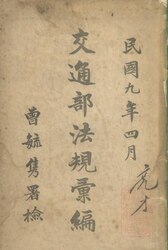 民國九年四月
交通部法規彙編
曾毓雋署檢